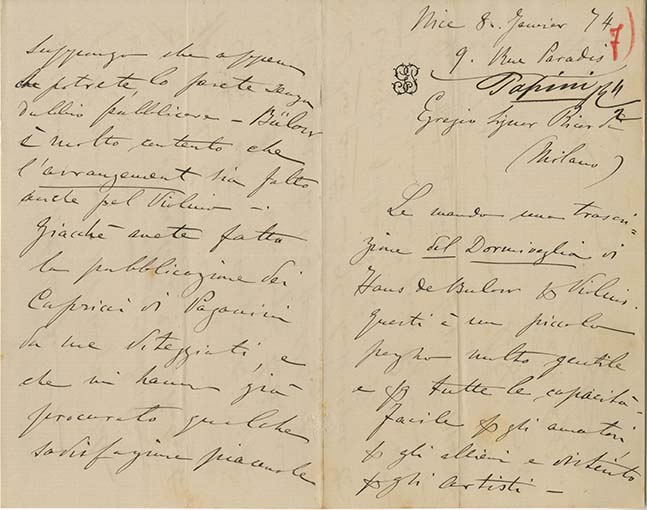 Nice 8. Janvier 74
7)
9. Rue Paradis
Papini
Egregio Signor Ricordi
(Milano)
Le mando una trascri-
zione del Dormiveglia di
Hans de Bulow p Violino.
Questi è un piccolo
pezzo molto gentile
e p tutte le capacità-
facile p gli amatori
p gli allievi e
p gli artisti –
suppongo che appena
lo potrete, lo farete senza
dubbio pubblicare – Bülow
è molto contento che
l'arrangement sia fatto
anche pel Violino –.
Giacchè avete fatto
la pubblicazione dei
Capricci di Paganini
da me diteggiati, e
che mi hanno già
procurato qualche
sodisfazione piacevole